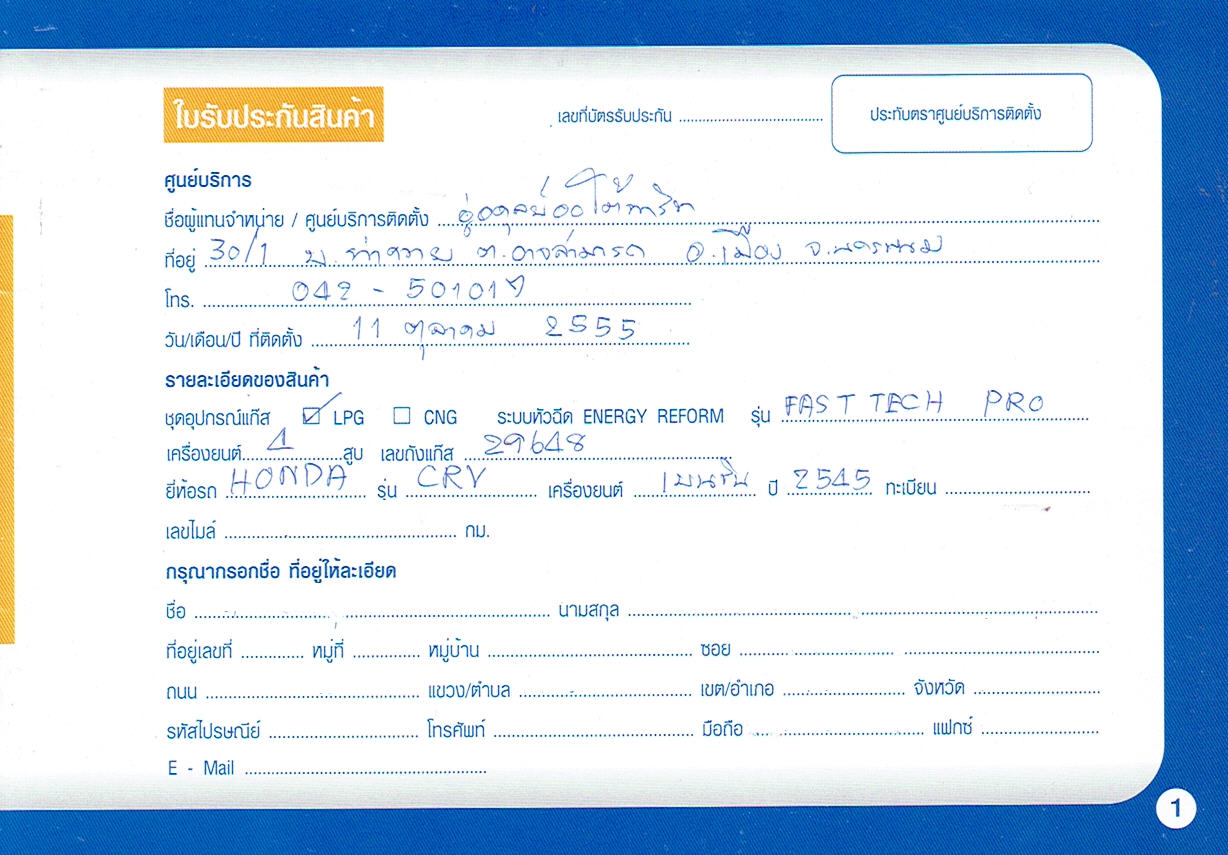 ใบรับประกันสินค้า
เลขที่บัตรรับประกัน
ประทับตราศูนย์บริการติดตั้ง
ศูนย์บริการ
ชื่อผู้แทนจำหน่าย / ศูนย์บริการติดตั้ง
ที่อยู่ 30/1 ต.อาจสามารถ อ.เมือง จ.นครพนม
โทร. 042 -
วัน/เดือน/ปี ที่ติดตั้ง 11 ตุลาคม 2555
รายละเอียดของสินค้า
ชุดอุปกรณ์แก๊ส ☑ LPG ☐ CNG ระบบหัวฉีด ENERGY REFORM รุ่น FAST TECH PRO
เครื่องยนต์ 4 สูบ เลขถังแก๊ส 29648
ยี่ห้อรถ HONDA รุ่น CRV เครื่องยนต์ เบนซิน ปี 2545 ทะเบียน
เลขไมล์ กม.
กรุณากรอกชื่อ ที่อยู่ให้ละเอียด
ชื่อ นามสกุล
ที่อยู่เลขที่ หมู่ที่ หมู่บ้าน ซอย
ถนน แขวง/ตำบล เขต/อำเภอ จังหวัด
รหัสไปรษณีย์ โทรศัพท์ มือถือ แฟกซ์
E - Mail
1